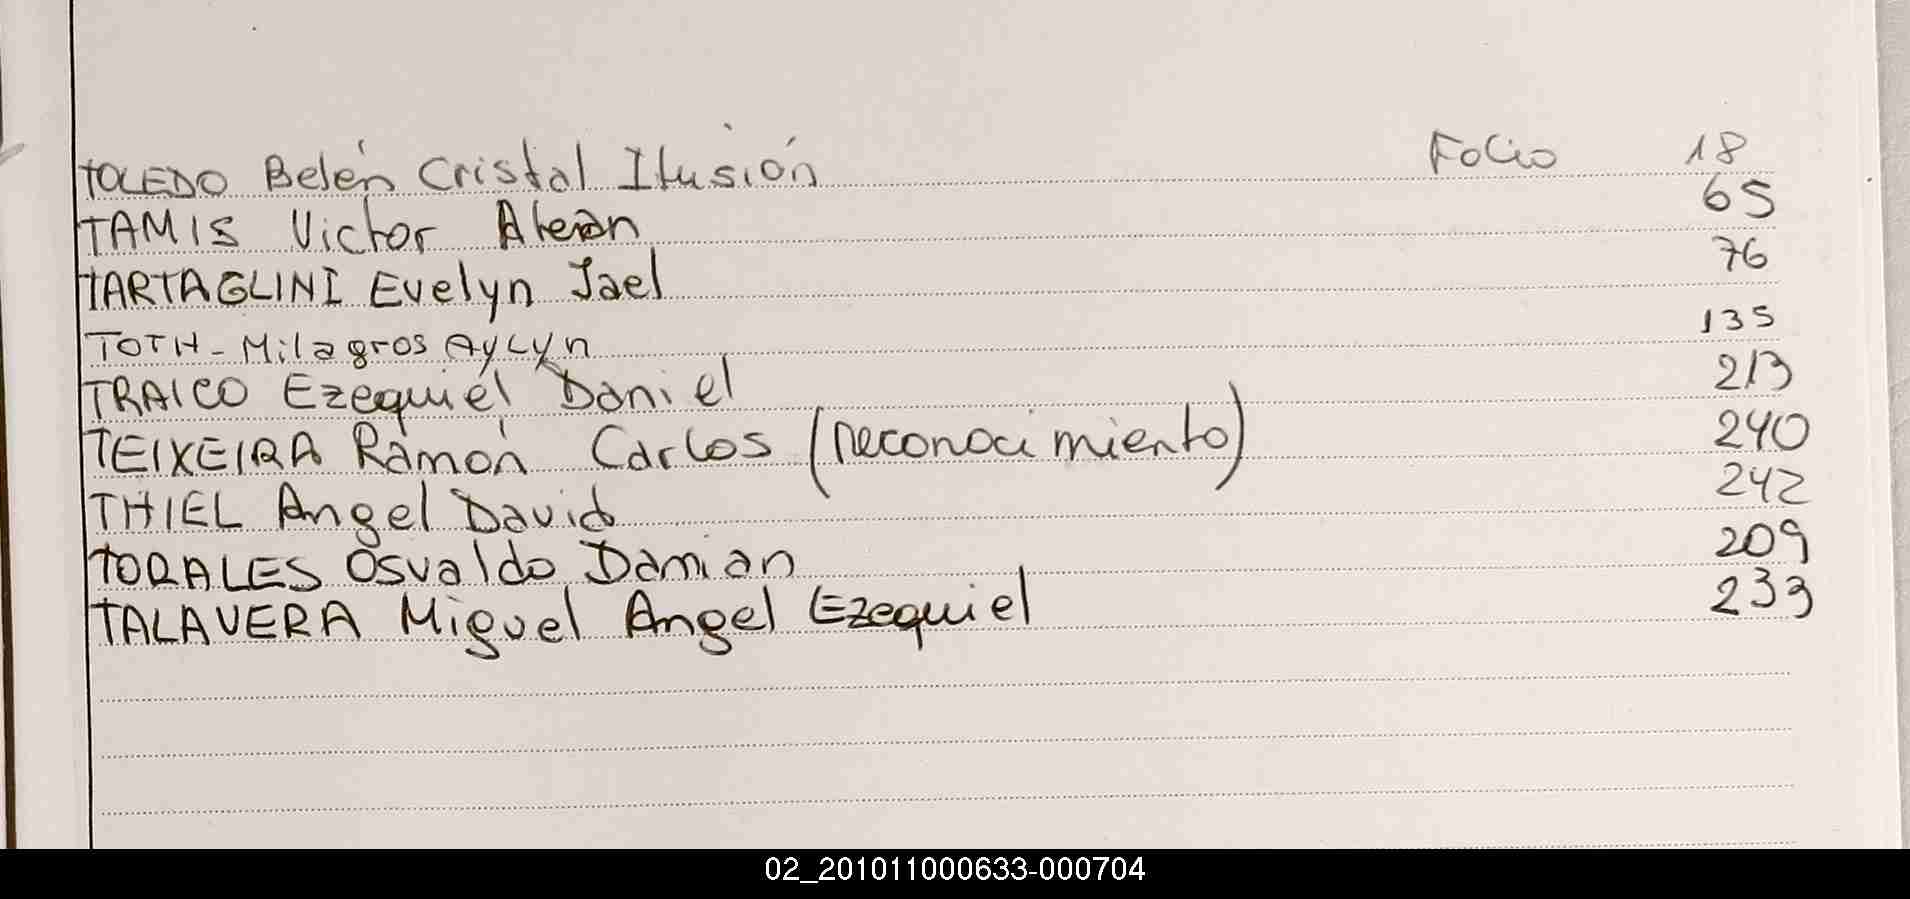 TOLEDO Belén Cristal Ilusión Folio 18
TAMIS Victor 65
TARTAGLINI Evelyn Jael 76
TOTH - Milagros Aylyn 135
TRAICO Ezequiel Daniel 213
TEIXEIRA Ramón Carlos (reconocimiento) 240
THIEL Angel David 242
TORALES Osvaldo Damian 209
TALAVERA Miguel Angel Ezequiel 233
02_201011000633-000704